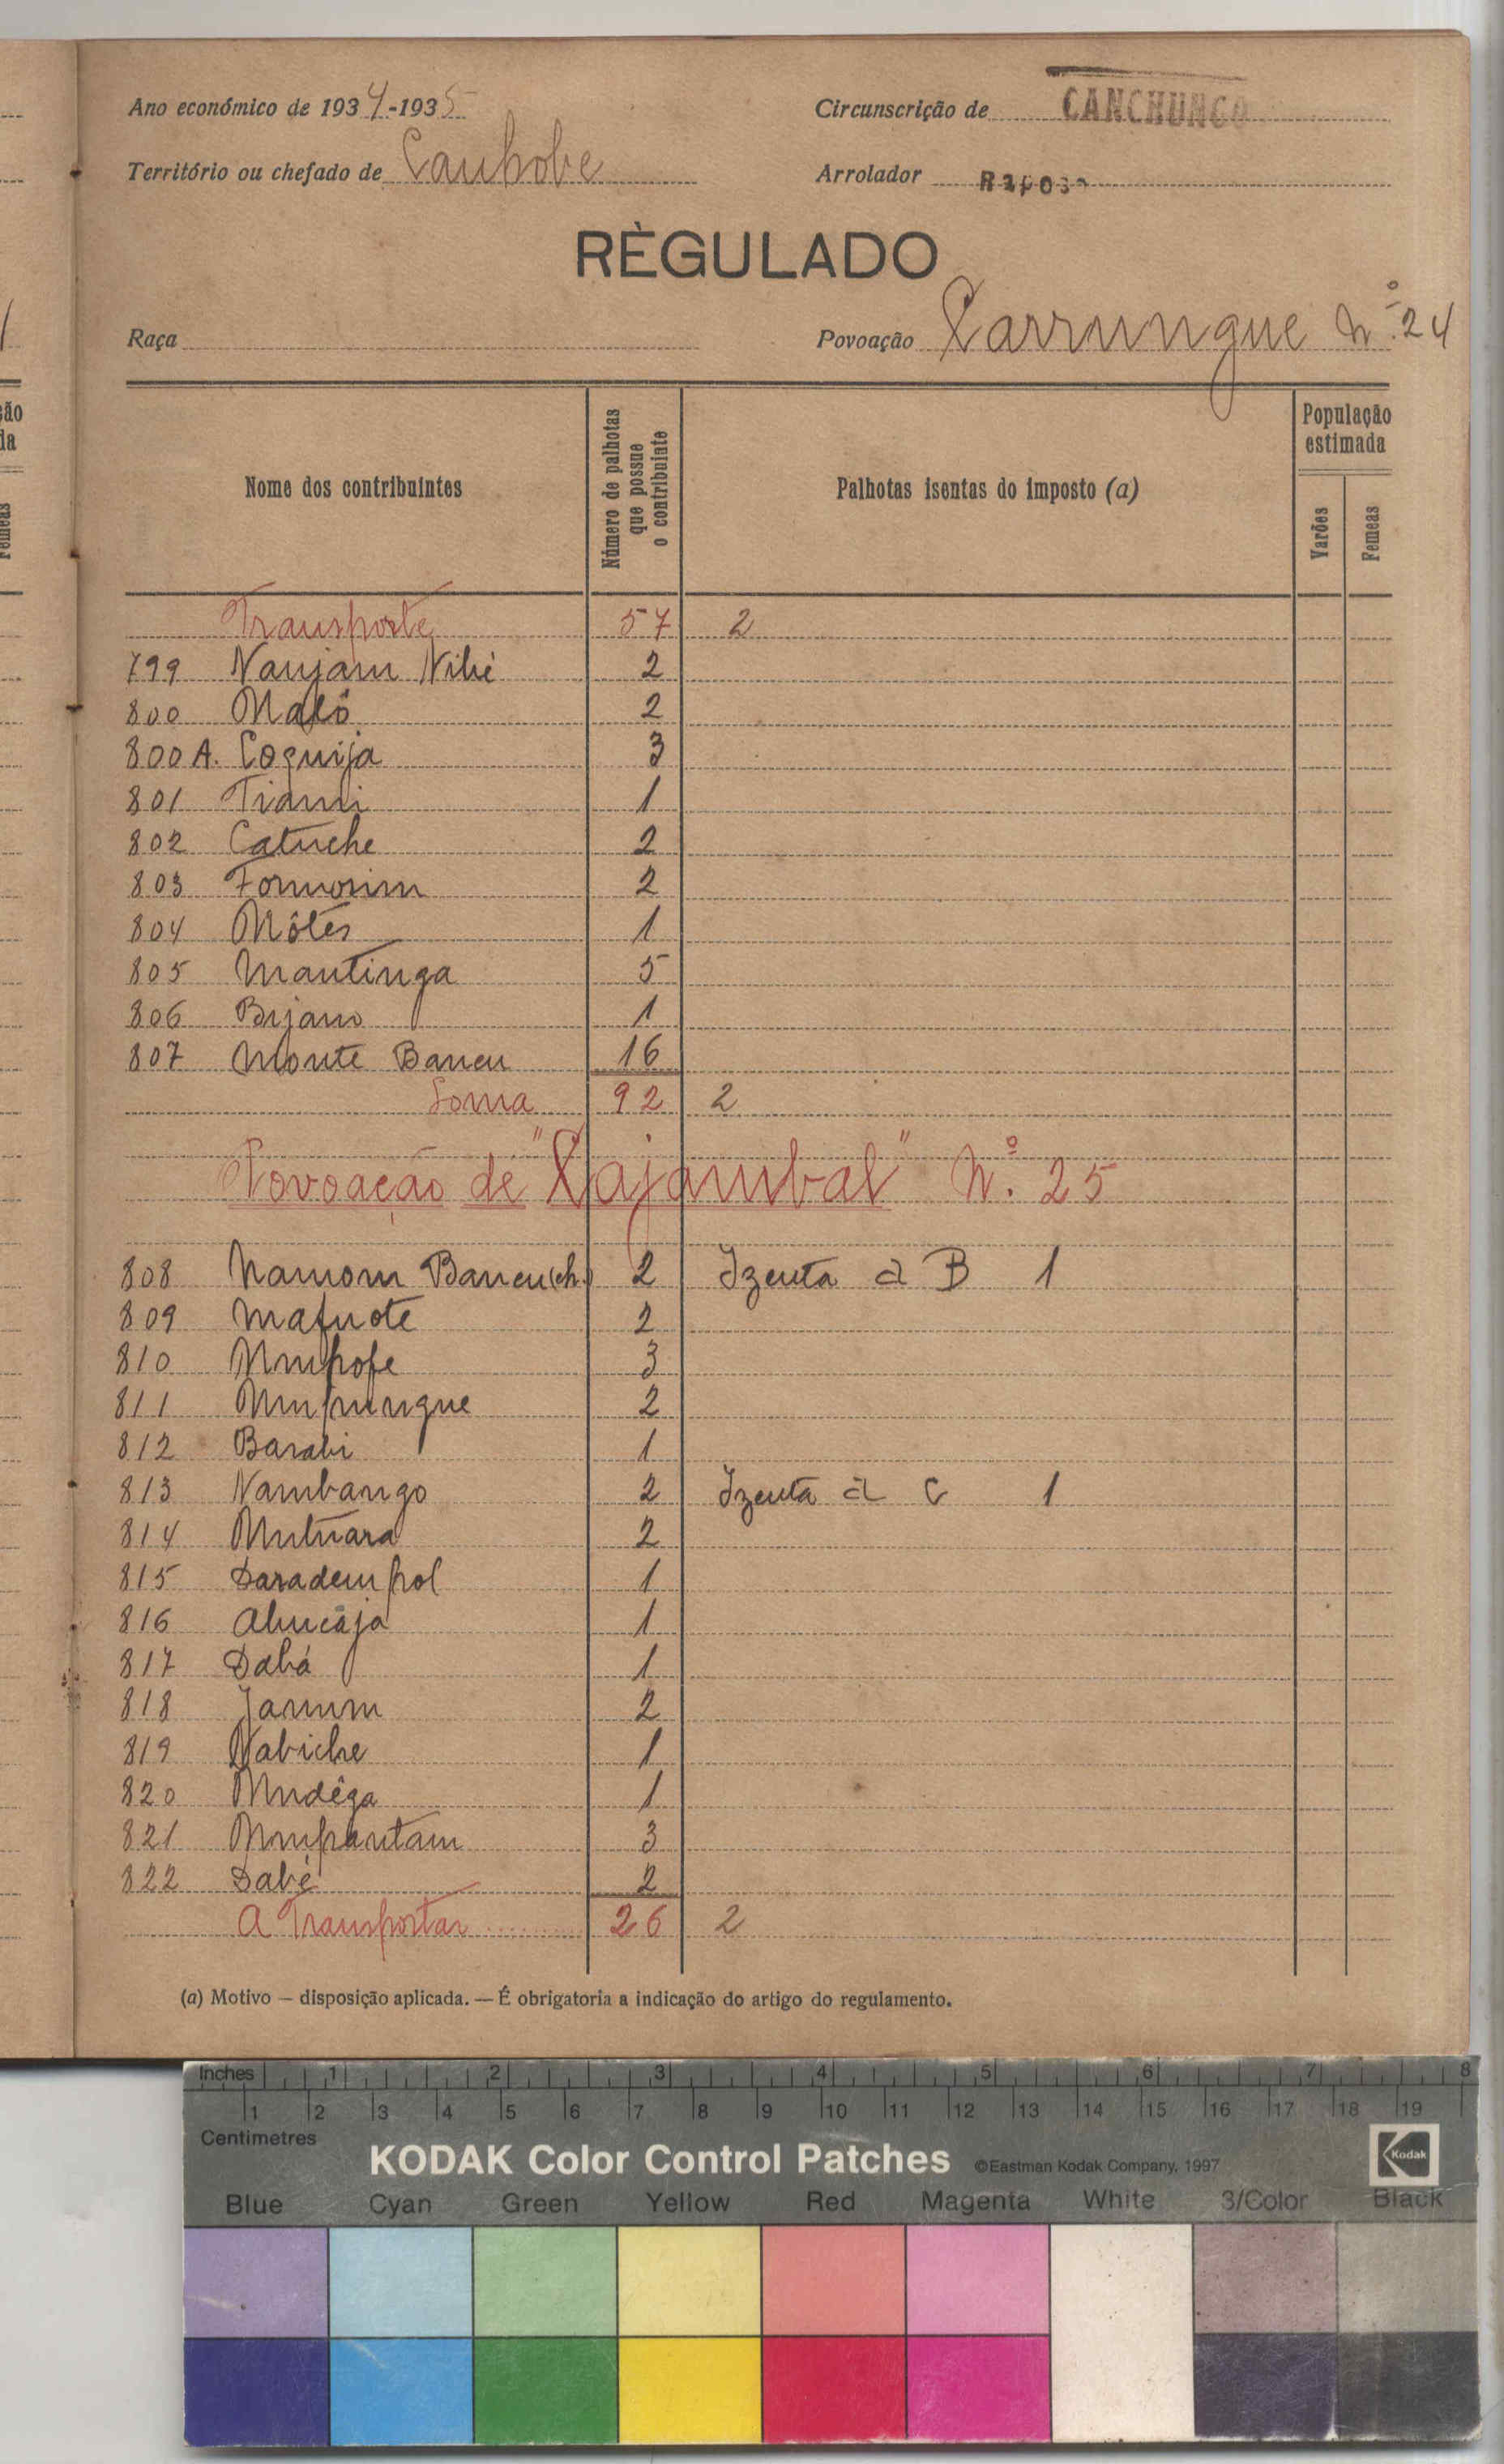 Ano económico de 1934-1935
Circunscrição de CANCHUNGO
Território ou chefado de Canhobe
Arrolador Raposo
RÈGULADO
Raça
Povoação Carrungue N.º 24
Nome dos contribuintes
Número de palhotas que possue o contribuinte
Palhotas isentas do imposto (a)
População estimada
Varões
Femeas
Transporte 57 2
799 Naujam Nihé 2
800 Maló 2
800 A. Coquija 3
801 Tiami 1
802 Catuche 2
803 Formosim 2
804 Môtes 1
805 Mantinga 5
806 Bijamo 1
807 Monte Baneu 16
Soma 92 2
Povoação de "Cajambal" N.º 25
808 Namom Baneu (ch.) 2 Izenta al B 1
809 Mafuote 2
810 Mmpofe 3
811 Mmpungue 2
812 Barabi 1
813 Nambango 2 Izenta al C 1
814 Mutuara 2
815 Daradempol 1
816 Ahucaja 1
817 Dabá 1
818 Janum 2
819 Nabiche 1
820 Mudêga 1
821 Mmpantam 3
822 Dabé 2
A Transportar 26 2
(a) Motivo — disposição aplicada. — É obrigatoria a indicação do artigo do regulamento.
Inches 1 2 3 4 5 6 7 8
1 2 3 4 5 6 7 8 9 10 11 12 13 14 15 16 17 18 19
Centimetres
KODAK Color Control Patches ©Eastman Kodak Company, 1997 Kodak
Blue Cyan Green Yellow Red Magenta White 3/Color Black